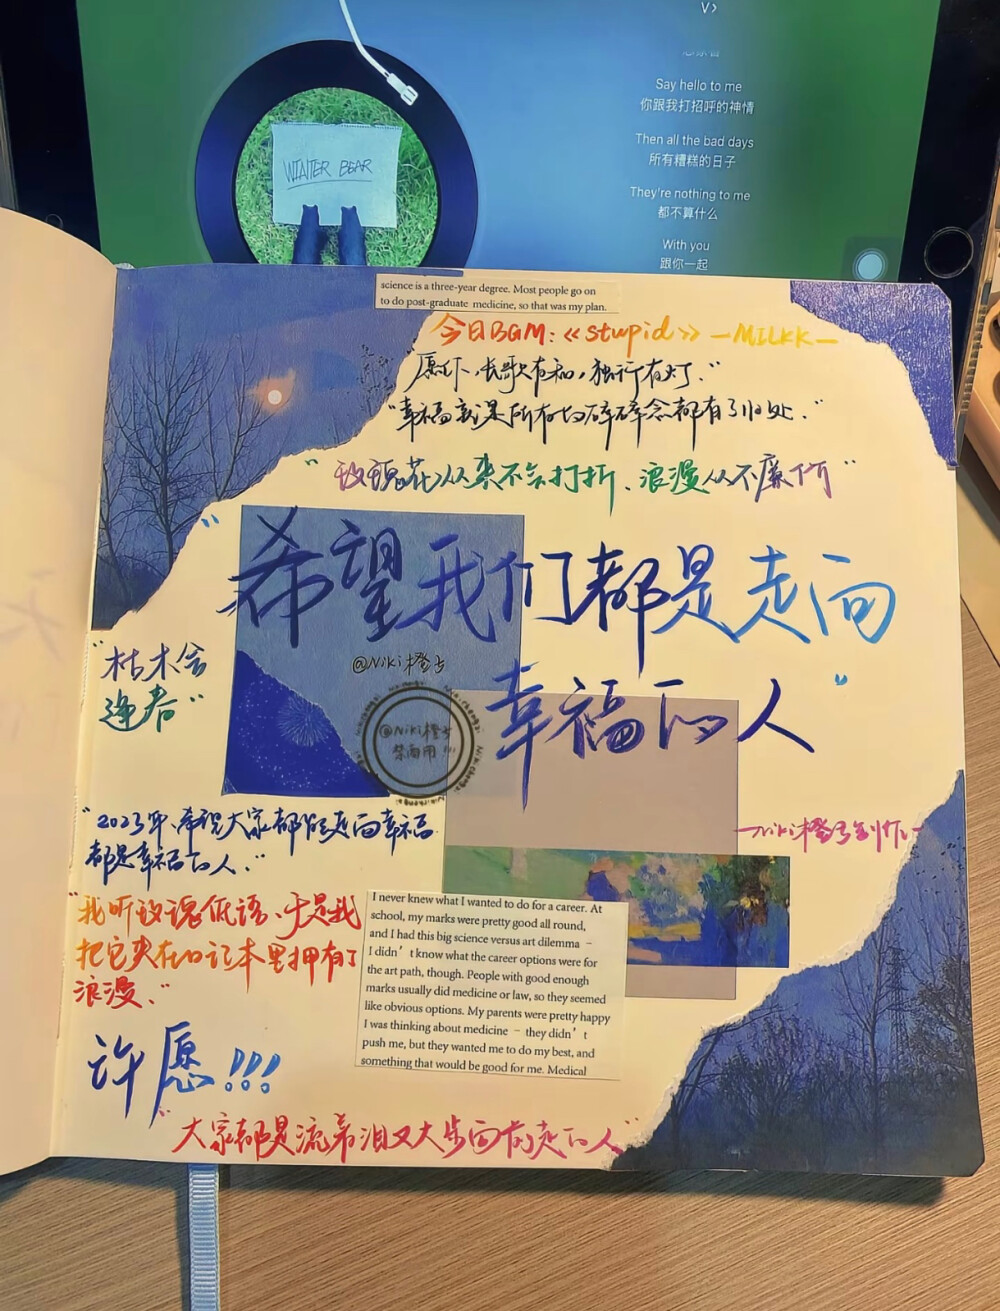 V>
Say hello to me
你跟我打招呼的神情
Then all the bad days
所有糟糕的日子
They're nothing to me
都不算什么
With you
跟你一起
WINTER BEAR
science is a three-year degree. Most people go on
to do post-graduate medicine, so that was my plan.
今日BGM:《stupid》—MILKK—
"愿你、长歌有和,独行有灯."
"幸福就是所有的碎碎念都有了归处."
"玫瑰花从来不会打折、浪漫从不廉价"
"希望我们都是走向
幸福的人"
@Niki橙子
@Niki橙子
禁商用!!!
"枯木会
逢春"
—Niki橙子创作—
"2023年、希望大家都能走向幸福
都是幸福的人."
"我听玫瑰低语、于是我
把它夹在日记本里拥有了
浪漫."
I never knew what I wanted to do for a career. At
school, my marks were pretty good all round,
and I had this big science versus art dilemma –
I didn't know what the career options were for
the art path, though. People with good enough
marks usually did medicine or law, so they seemed
like obvious options. My parents were pretty happy
I was thinking about medicine – they didn't
push me, but they wanted me to do my best, and
something that would be good for me. Medical
许愿!!!
"大家都是流着泪又大步向前走的人"